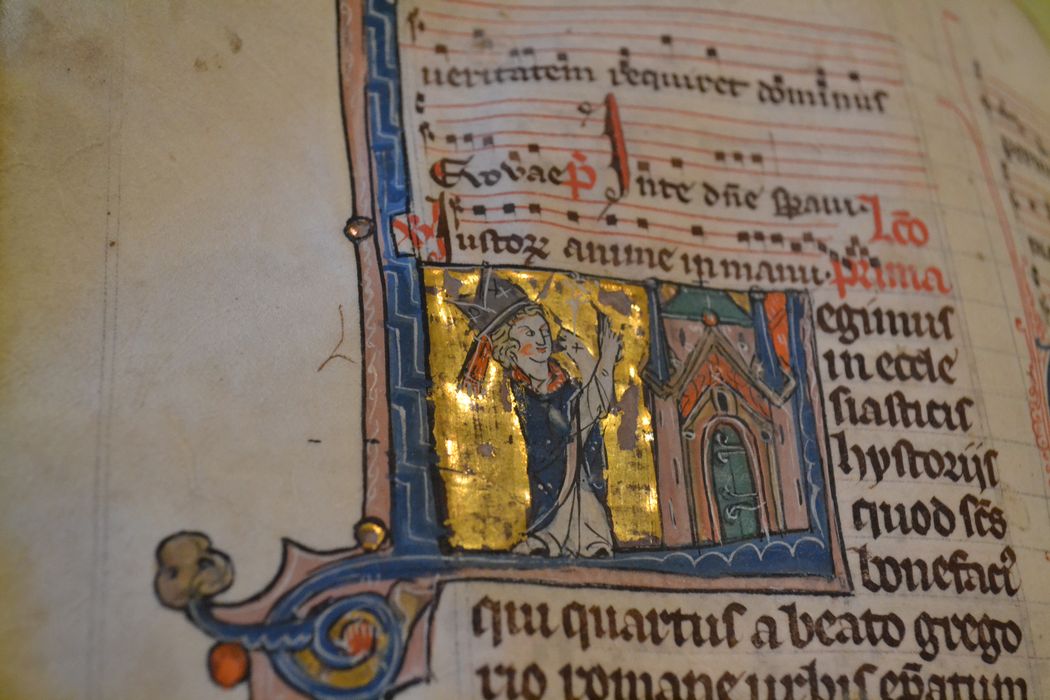 ueritatem requiret dominus
Evovae p̃ Inte dñe sperauı. Lcõ
℟ Iustoꝝ anime in manu. prima
egimus
in eccle
siasticis
hystorijs
quod scs̃
bonefaci9
qui quartus a beato grego
rio romane urbis